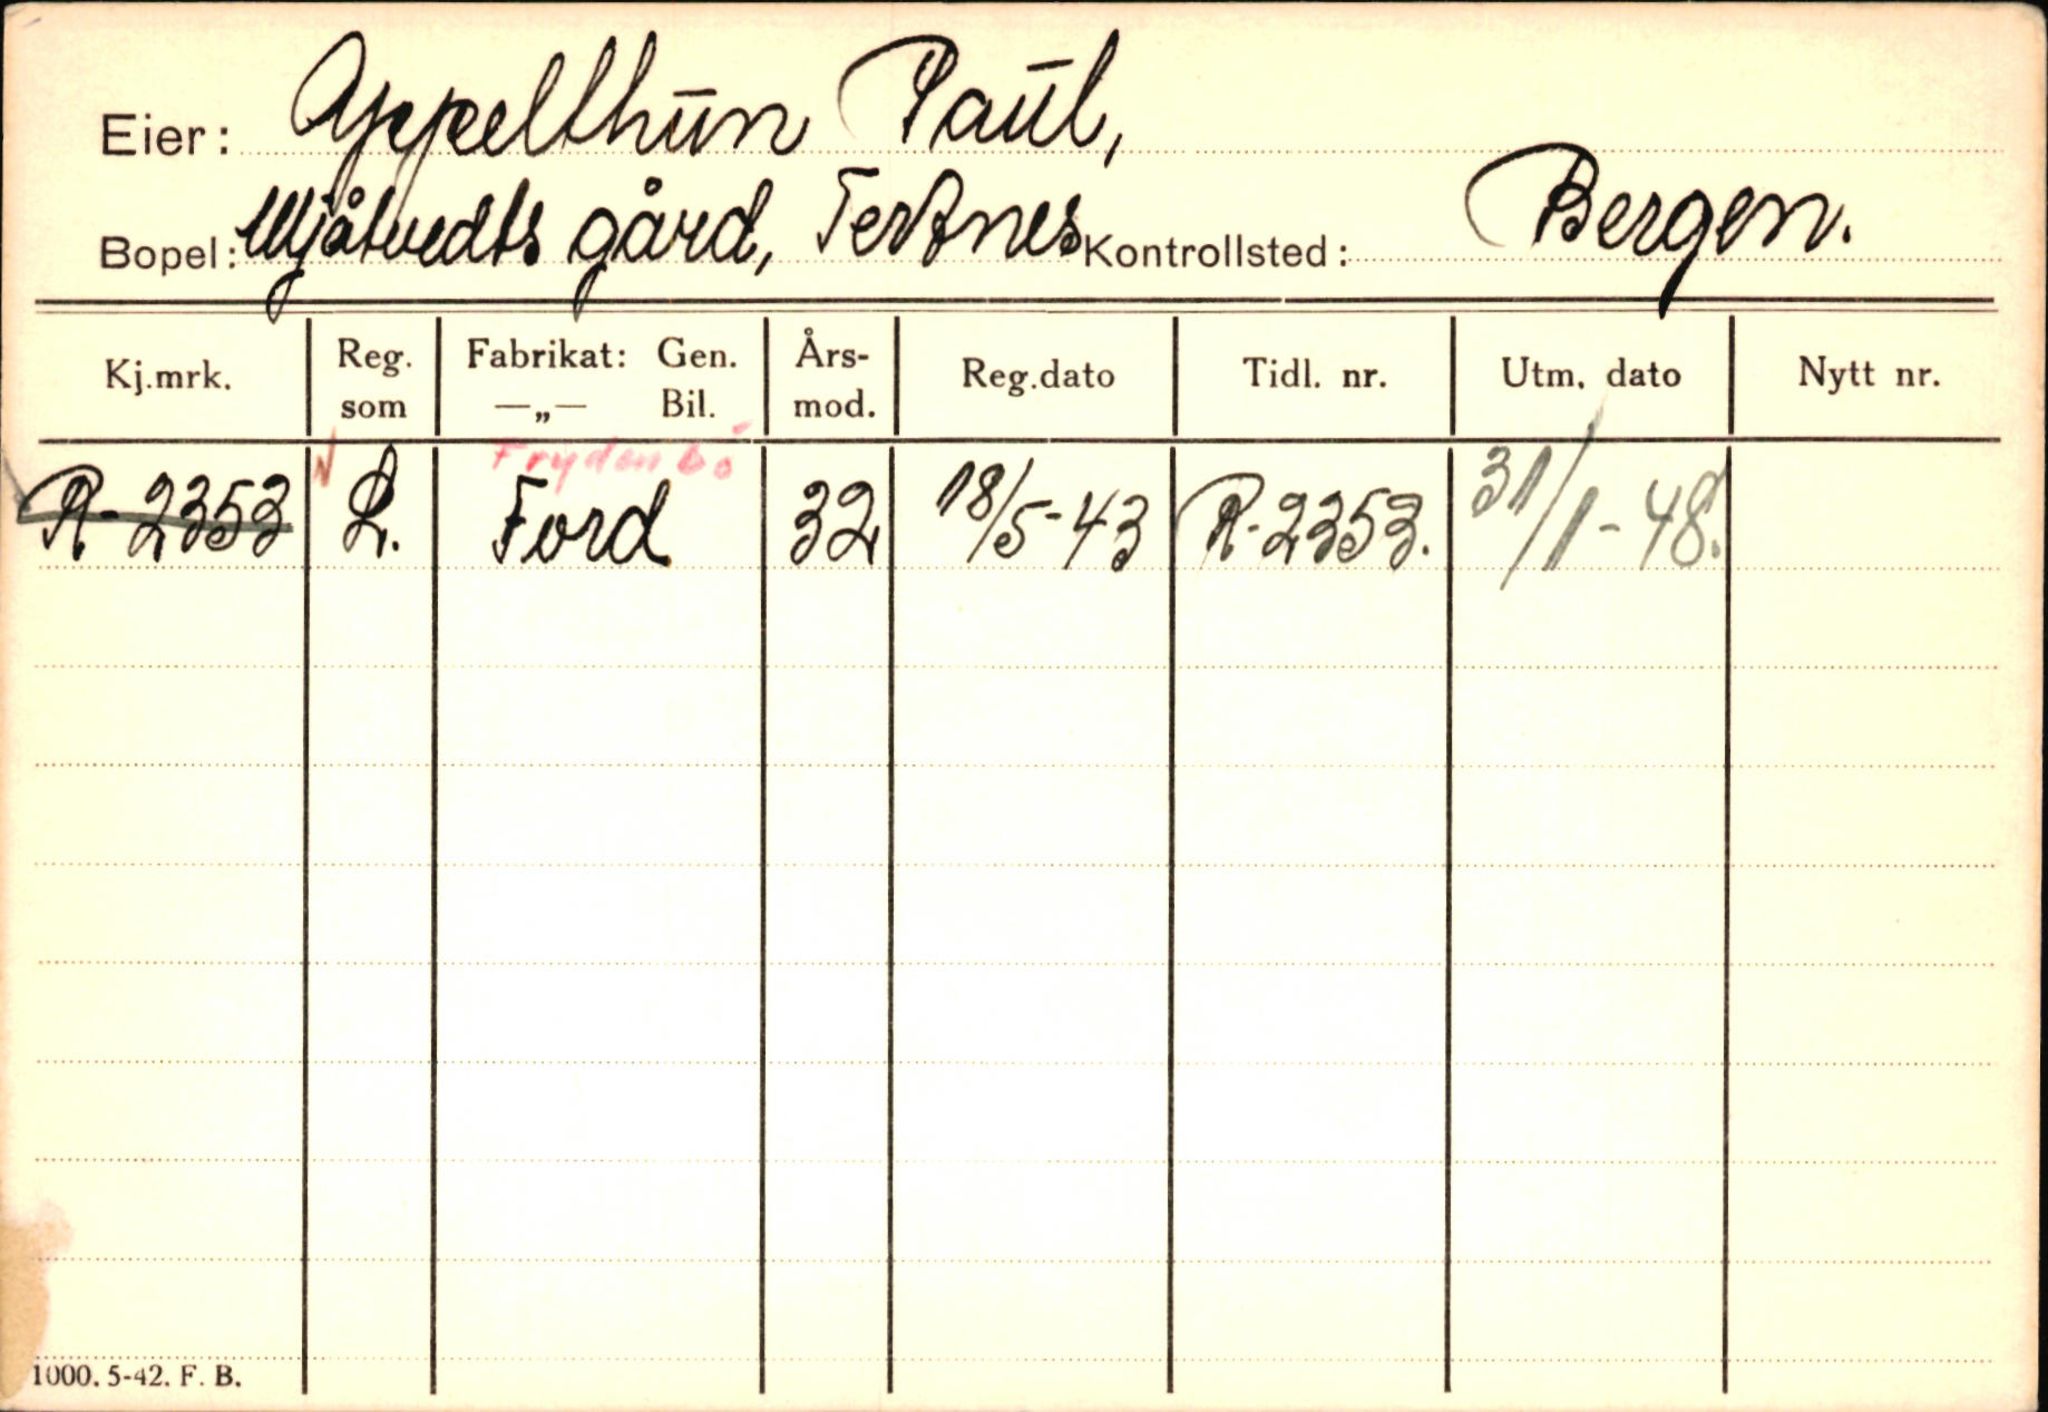 Eier: Appelthun Paul,
Bopel: Mjåtvedts gård, Tertnes Kontrollsted: Bergen.
Kj.mrk. Reg. som Fabrikat: Gen. —„— Bil. Års-mod. Reg.dato Tidl. nr. Utm. dato Nytt nr.
Frydenbö
R-2353 L. Ford 32 18/5-43 R-2353. 31/1-48.
1000. 5-42. F. B.